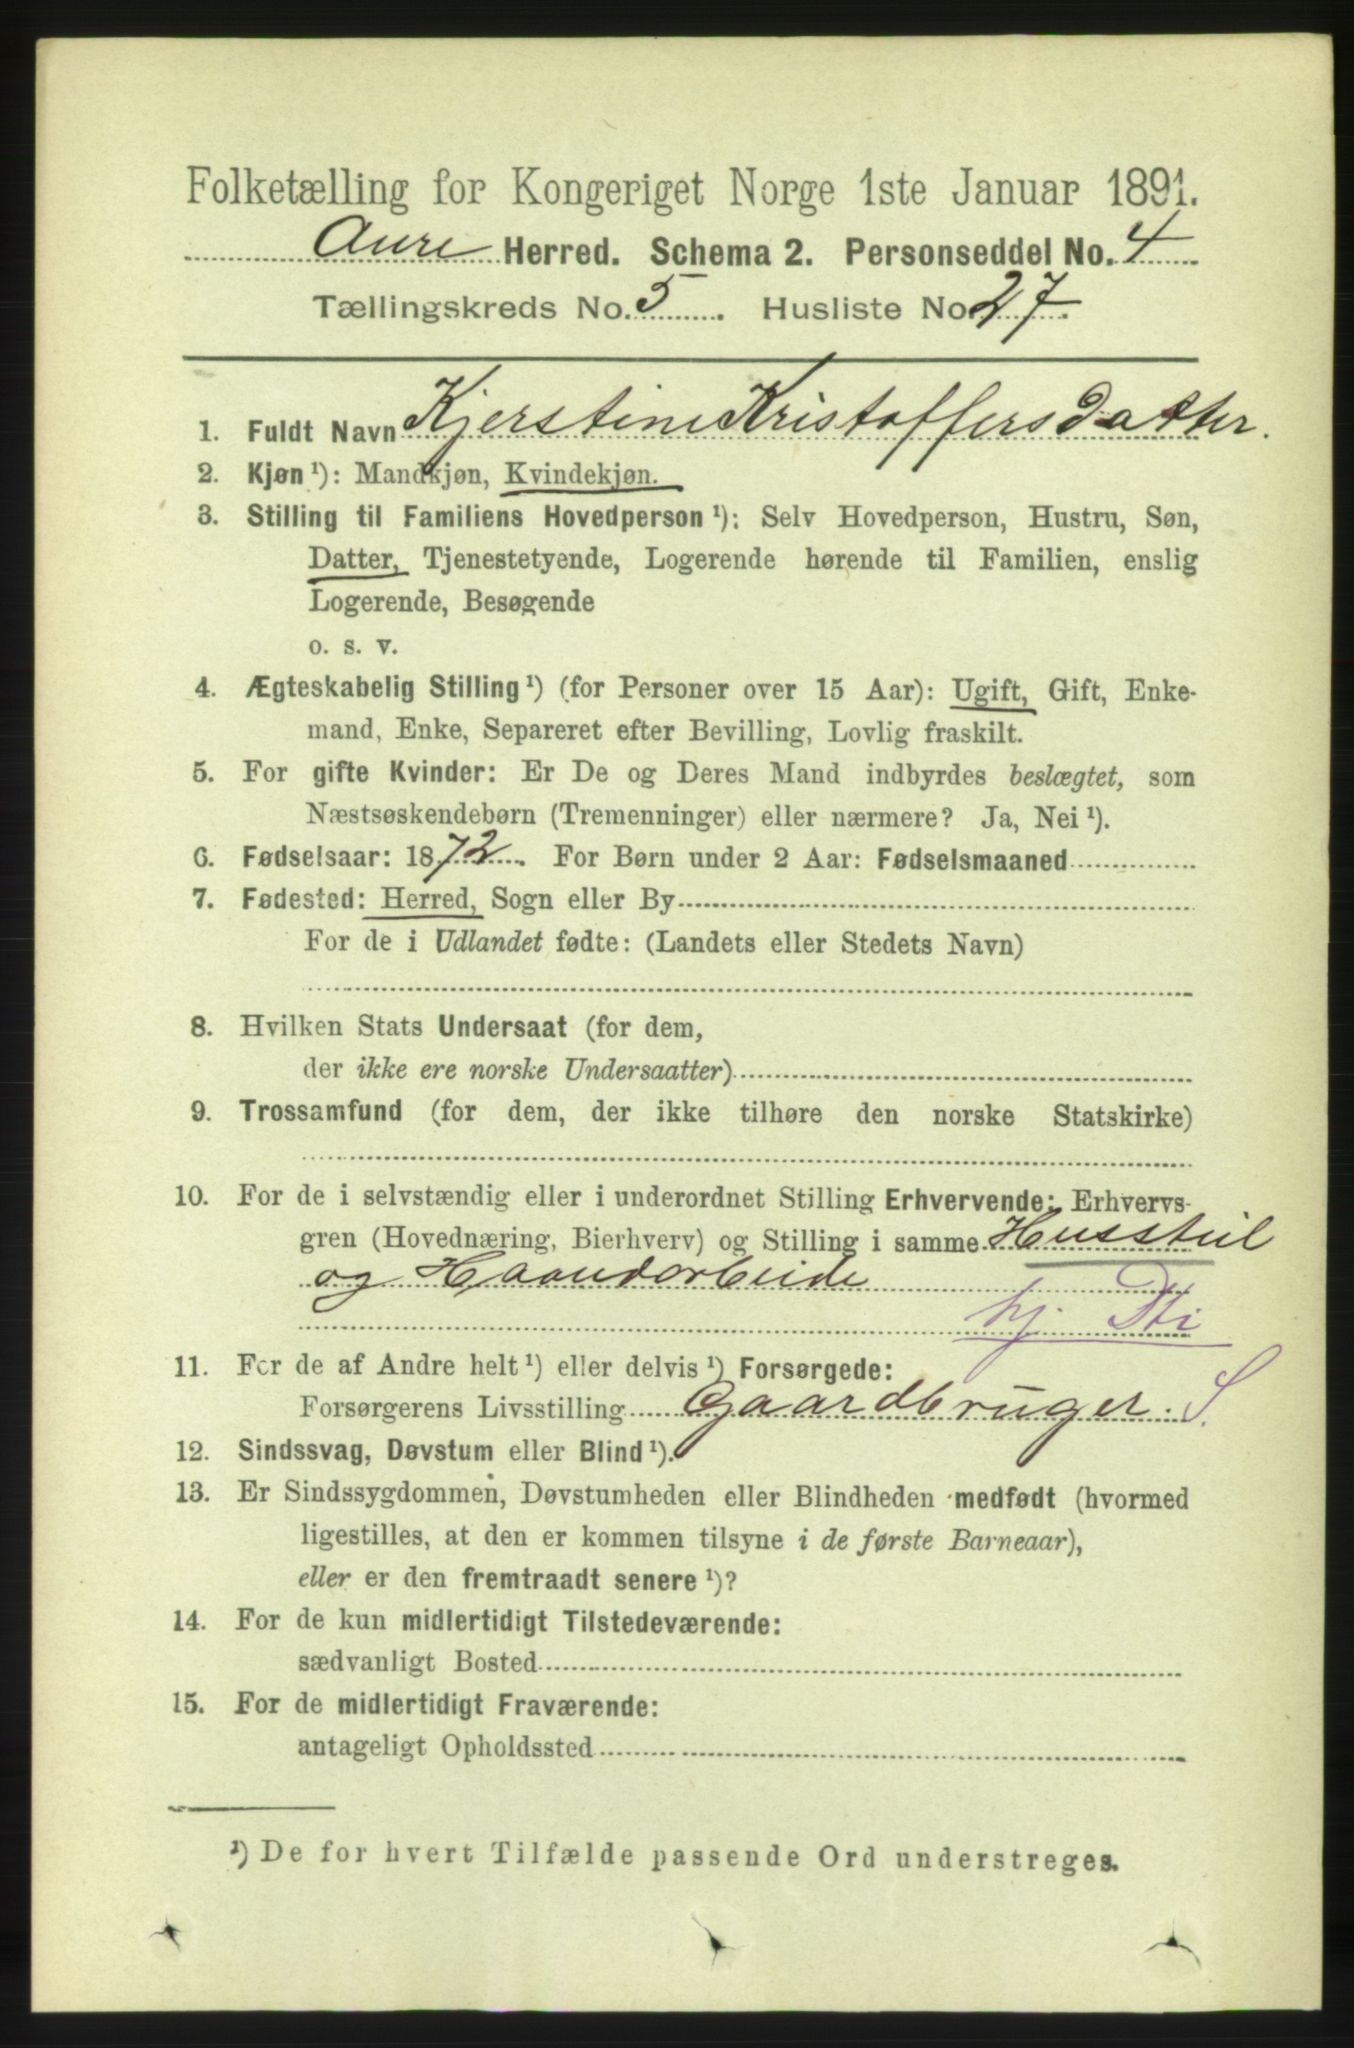 Folketælling for Kongeriget Norge 1ste Januar 1891.
Aure Herred. Schema 2. Personseddel No. 4
Tællingskreds No. 5. Husliste No. 27.
1. Fuldt Navn Kjerstine Kristoffersdatter.
2. Kjøn ¹): Mandkjøn, Kvindekjøn.
3. Stilling til Familiens Hovedperson ¹): Selv Hovedperson, Hustru, Søn,
Datter, Tjenestetyende, Logerende hørende til Familien, enslig
Logerende, Besøgende
o. s. v.
4. Ægteskabelig Stilling ¹) (for Personer over 15 Aar): Ugift, Gift, Enke-
mand, Enke, Separeret efter Bevilling, Lovlig fraskilt.
5. For gifte Kvinder: Er De og Deres Mand indbyrdes beslægtet, som
Næstsøskendebørn (Tremenninger) eller nærmere? Ja, Nei ¹).
6. Fødselsaar: 1872. For Børn under 2 Aar: Fødselsmaaned
7. Fødested: Herred, Sogn eller By
For de i Udlandet fødte: (Landets eller Stedets Navn)
8. Hvilken Stats Undersaat (for dem,
der ikke ere norske Undersaatter)
9. Trossamfund (for dem, der ikke tilhøre den norske Statskirke)
10. For de i selvstændig eller i underordnet Stilling Erhvervende: Erhvervs-
gren (Hovednæring, Bierhverv) og Stilling i samme Husstiil
og Haandarbeide
hj. Dtr
11. For de af Andre helt ¹) eller delvis ¹) Forsørgede:
Forsørgerens Livsstilling Gaardbruger. S.
12. Sindssvag, Døvstum eller Blind ¹).
13. Er Sindssygdommen, Døvstumheden eller Blindheden medfødt (hvormed
ligestilles, at den er kommen tilsyne i de første Barneaar),
eller er den fremtraadt senere ¹)?
14. For de kun midlertidigt Tilstedeværende:
sædvanligt Bosted
15. For de midlertidigt Fraværende:
antageligt Opholdssted
¹) De for hvert Tilfælde passende Ord understreges.